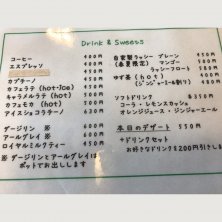 Drink & Sweets
コーヒー 400円
エスプレッソ 400円
カプチーノ 450円
カフェラテ (hot・Ice) 450円
キャラメルラテ (hot) 500円
カフェモカ (hot) 500円
アイスショコラチーノ 500円
ダージリン ※ 400円
アールグレイ ※ 400円
ロイヤルミルクティー 450円
※ ダージリンとアールグレイは
ポットでお出しします
自家製ラッシー プレーン 450円
(春夏限定) マンゴー 500円
ラッシーフロート 580円
ゆず茶 (hot) 400円
(ジンジャーエール割り) 480円
ソフトドリンク 各350円
コーラ・レモンスカッシュ
オレンジジュース・ジンジャーエール
本日のデザート 550円
+ドリンクセット
お好きなドリンク¥200円引きします